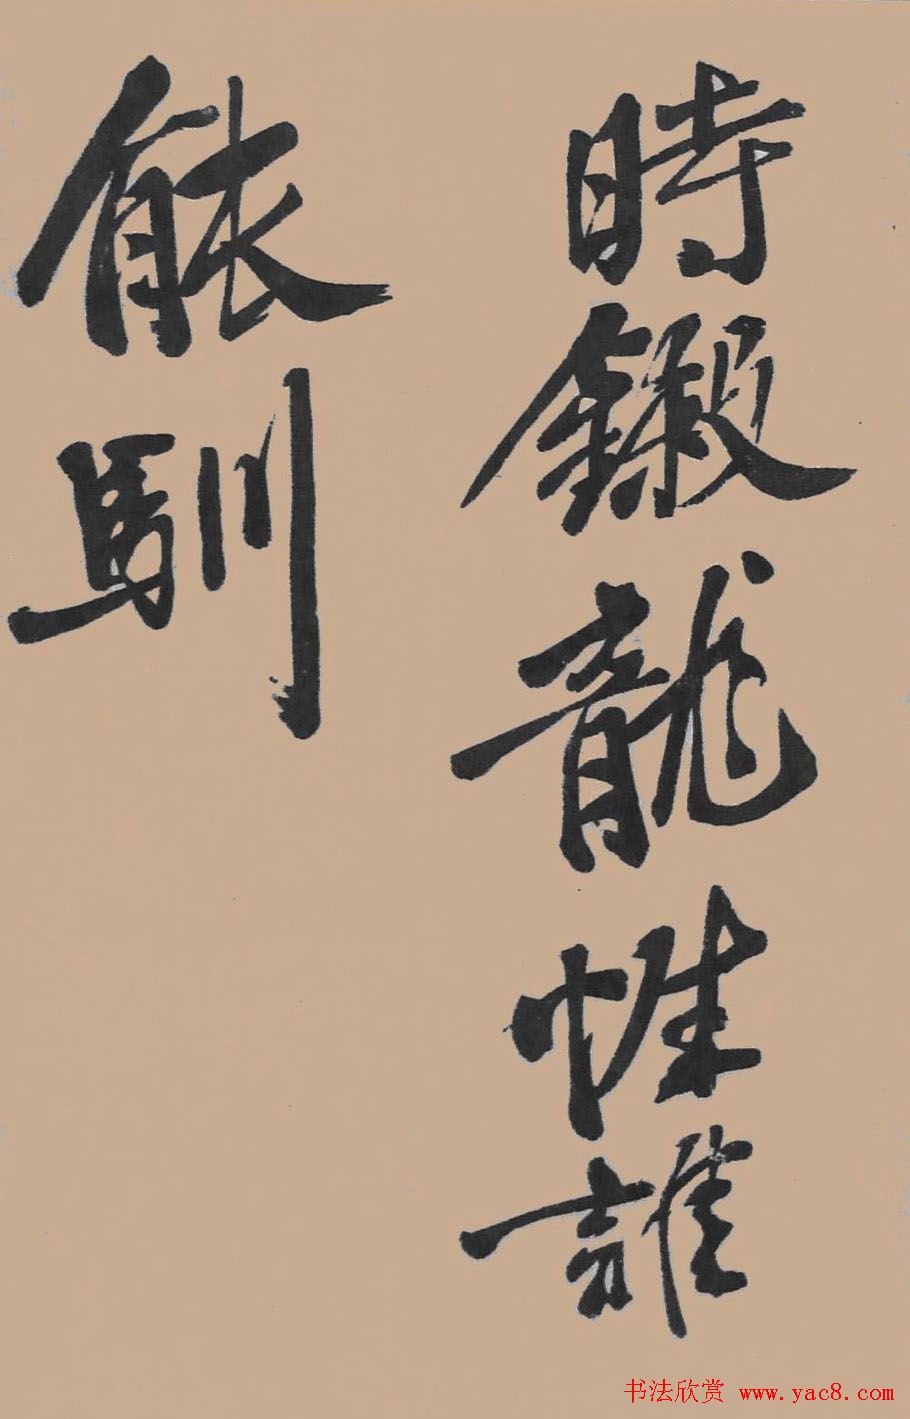 時鎩龍性誰
能馴
书法欣赏 www.yac8.com